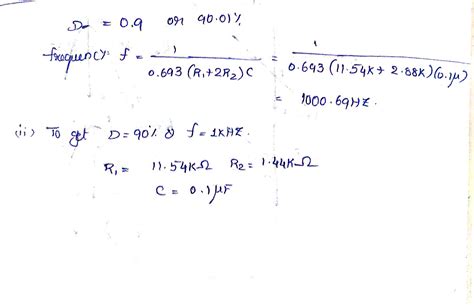 D = 0.9 or 90.01%
frequency f = 1 / 0.693 (R₁+2R₂)C = 1 / 0.693 (11.54K+ 2.88K)(0.1μ)
= 1000.69HZ.
(ii) To get D=90% & f=1KHZ.
R₁= 11.54KΩ R₂= 1.44KΩ
C = 0.1μF